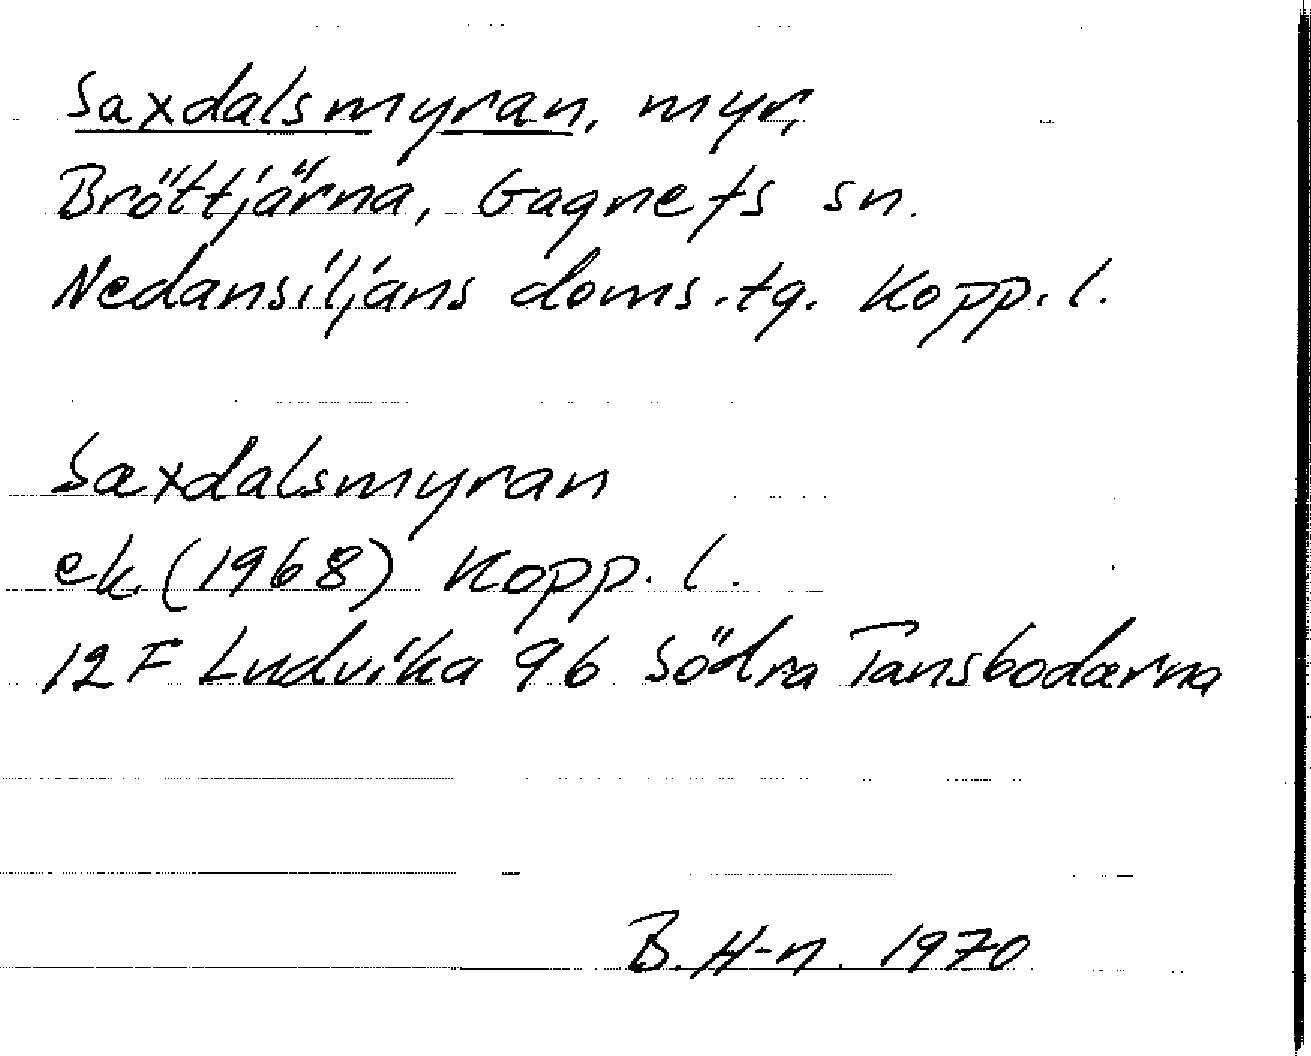 Saxdalsmyran, myr,
Bröttjärna, Gagnefs sn.
Nedansiljans doms.tg. Kopp.l.
Saxdalsmyran
ek (1968) Kopp. l.
12 F Ludvika 9b Södra Tansbodarna
B. H-n. 1970